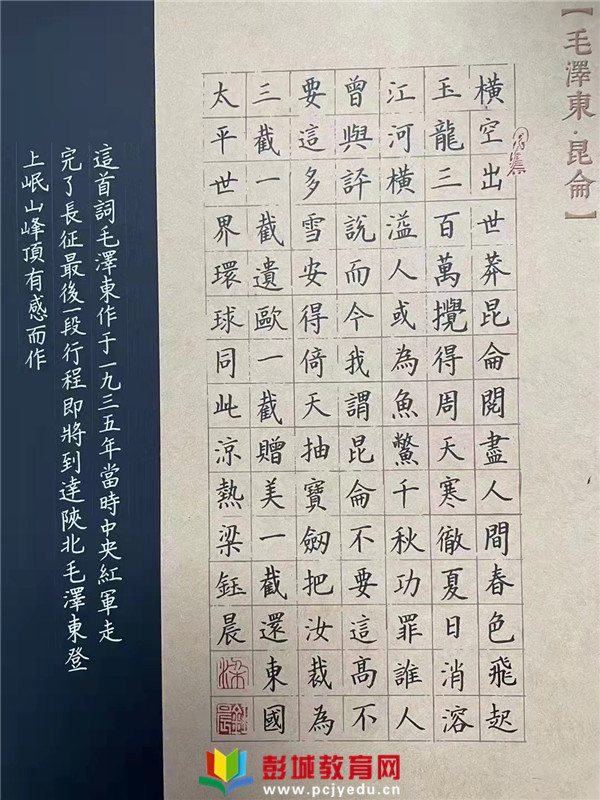 【毛澤東·昆侖】
橫空出世莽昆侖閱盡人間春色飛起
玉龍三百萬攪得周天寒徹夏日消溶
江河橫溢人或為魚鱉千秋功罪誰人
曾與評說而今我謂昆侖不要這高不
要這多雪安得倚天抽寶劍把汝裁為
三截一截遺歐一截贈美一截還東國
太平世界環球同此涼熱梁鈺晨
這首詞毛澤東作于一九三五年當時中央紅軍走
完了長征最後一段行程即將到達陝北毛澤東登
上岷山峰頂有感而作
彭城教育网
www.pcjyedu.cn